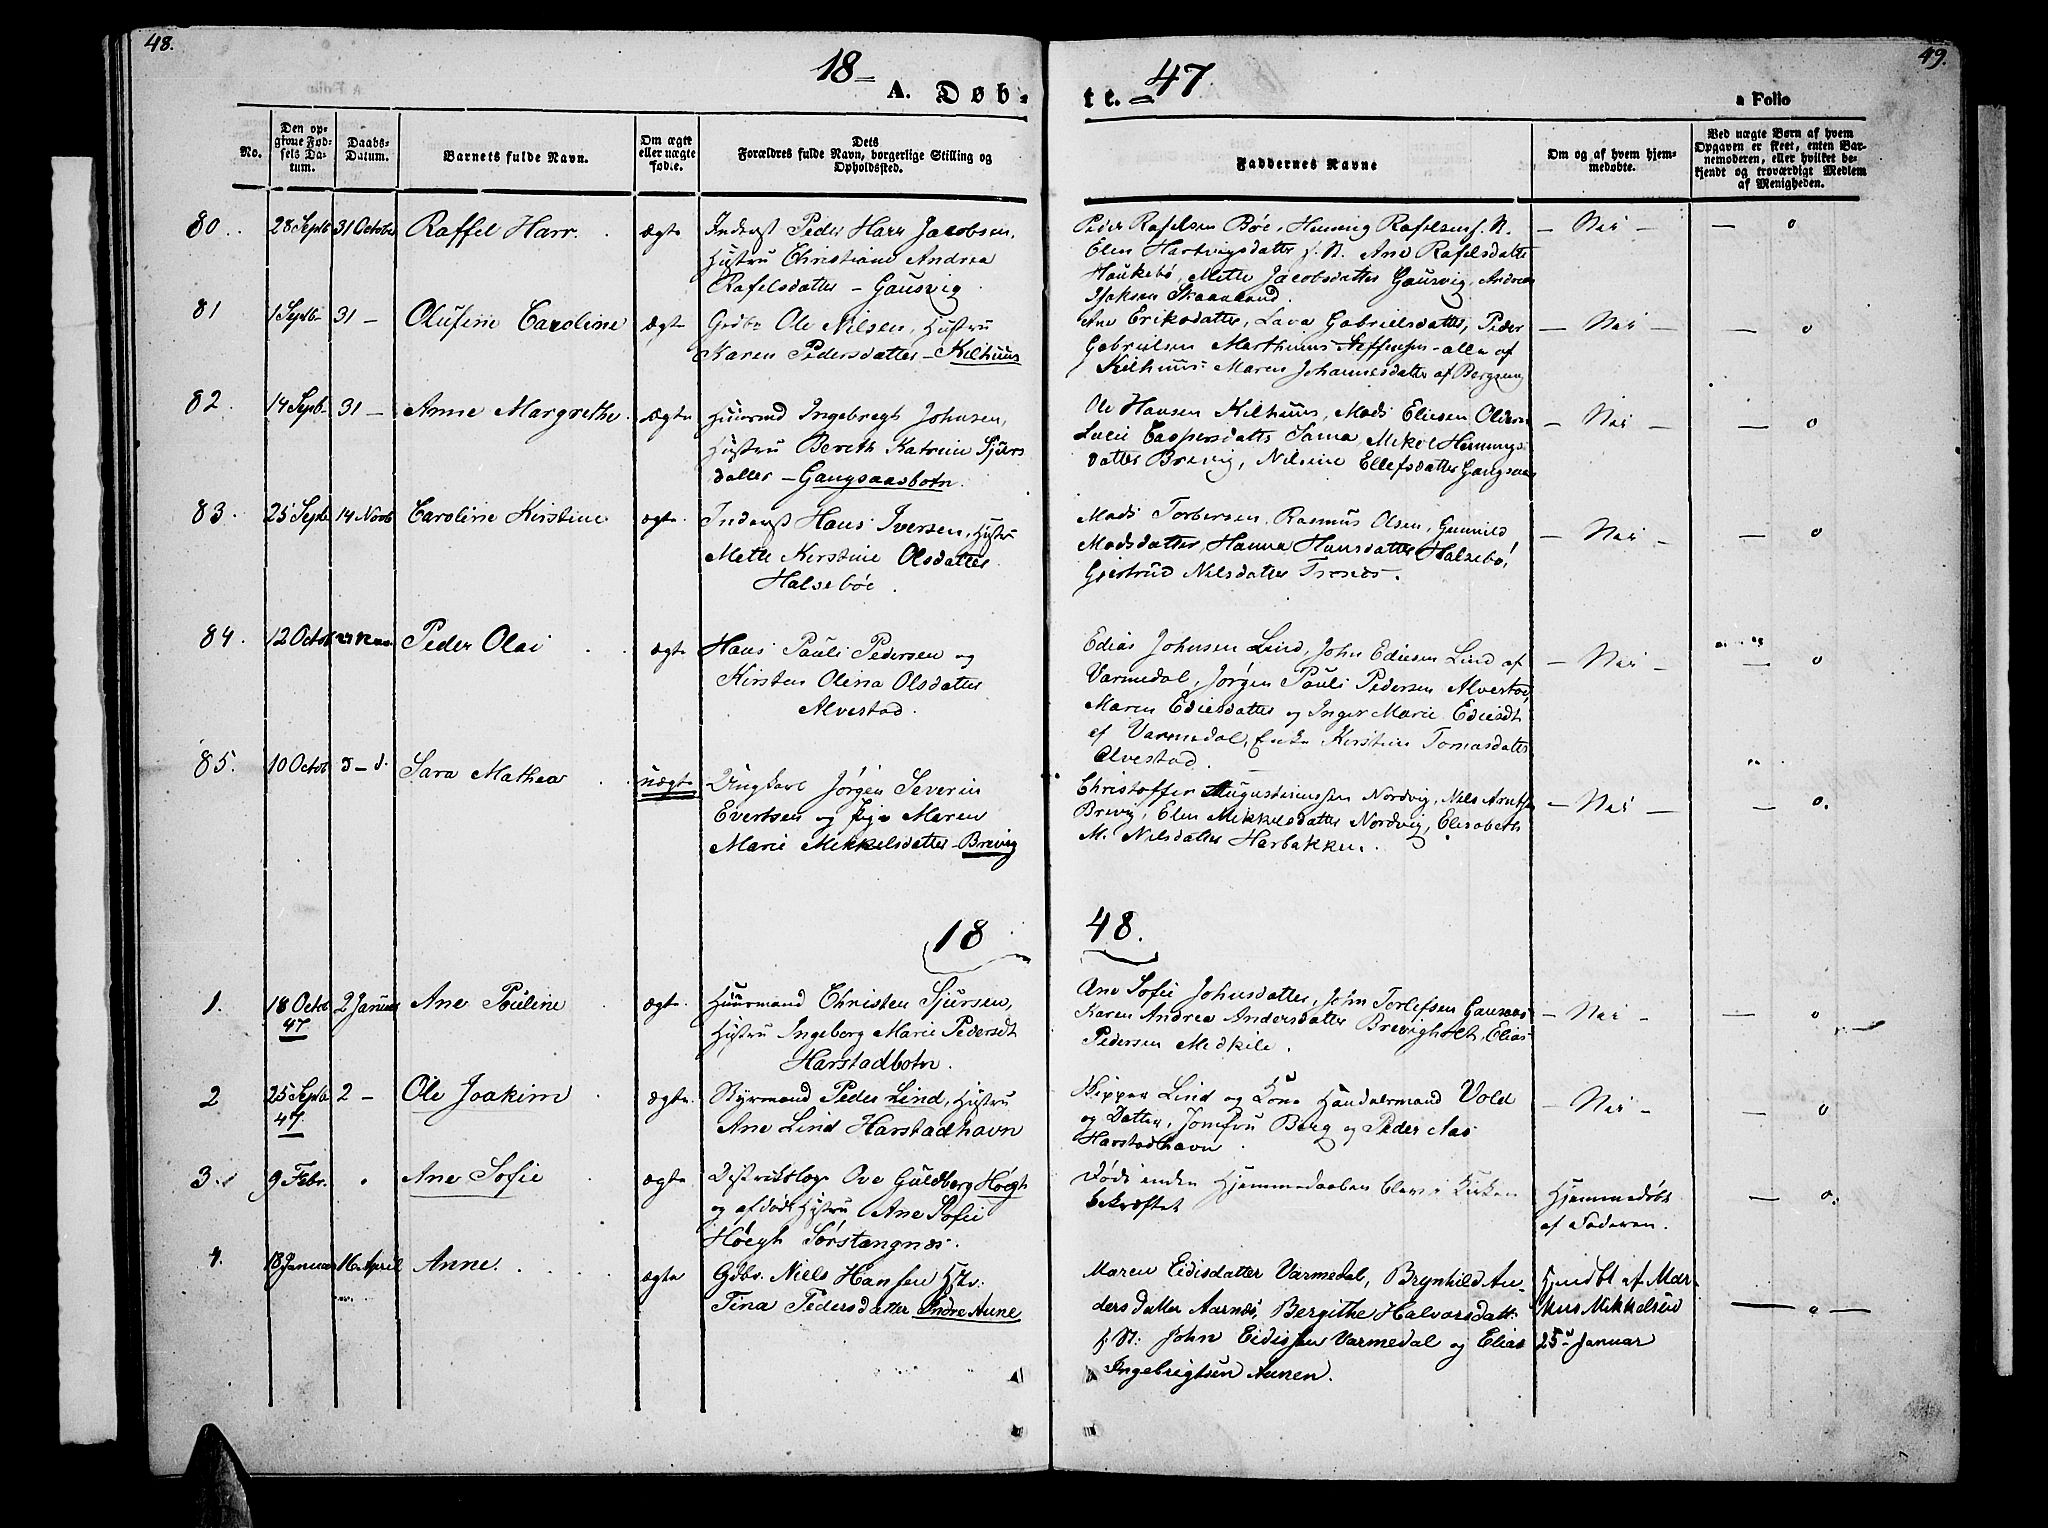 48.
49.
18— 47.
A. Døbte.
a Folio
No.
Den opgivne Fødsels Datum.
Daabs-Datum.
Barnets fulde Navn.
Om ægte eller uægte fød.e.
Dets Forældres fulde Navn, borgerlige Stilling og Opholdssted.
Faddernes Navne
Om og af hvem hjemmedøbte.
Ved uægte Børn af hvem Opgaven er skeet, enten Barnemoderen, eller hvilket bekjendt og troværdigt Medlem af Menigheden.
80. 28 Septb 31 October Raffel Harr. ægte
Inderst Peder Harr Jacobsen,
Hustru Christiane Andrea
Rafelsdatter – Gausvig.
Peder Rafelsen Bøe, Henning Rafelsen f. N.
Elen Hartvigsdatter f. N. Ane Rafelsdatter
Haukebø, Mette Jacobsdatter Gausvig, Andreas
Isaksen Skaanland.
— Nei — — o
81 1 Septb 31 — Olufine Caroline ægte
Grdbr Ole Nilsen, Hustru
Karen Pedersdatter – Kilhuus
Ane Eriksdatter, Lava Gabrielsdatter, Peder
Gabrielsen Marthinus Steffensen – alle af
Kilhuus – Maren Johannesdatter af Bergseng
— Nei — — o
82. 14 Septb. 31 — Anne Margrethe. ægte
Huusmd Ingebregt Johnsen,
Hustru Bereth Katrine Sjurs
datter – Gangsaasbotn.
Ole Hansen Kilhuus, Mads Eliesen Oldern
Lucie Caspersdatter Sama, Mikel Hennings
datter Brevig, Nilsine Ellefsdatter Gangsaas
— Nei — — o
83. 25 Septb 14 Novb Caroline Kirstine ægte.
Inderst Hans Iversen, Hustru
Mette Kirstine Olsdatter
Halsebøe.
Mads Torbersen, Rasmus Olsen, Gunnild
Madsdatter, Hanna Hansdatter Halsebø,
Gjertrud Nilsdatter Trones.
— Nei — — o
84. 12 Octob Peder Olai ægte
Hans Pauli Pedersen og
Kirsten Olina Olsdatter
Alvestad.
Edias Johnsen Lind, John Ediesen Lind af
Varmedal, Jørgen Pauli Pedersen Alvestad,
Maren Ediesdatter og Inger Marie Ediesdt
af Varmedal, Enke Kirstine Tomasdatter
Alvestad.
— Nei — — o
85. 10 Octob Sara Mathea uægte
Ungkarl Jørgen Severin
Evertsen og Pige Maren
Marie Mikkelsdatter – Brevig
Christoffer Augustinussen Nordvig, Nils Arntsen
Brevig, Elen Mikkelsdatter Nordvig, Elisabeth
M. Nilsdatter Harbakken.
— Nei — — o.
18 48.
1. 18 Octob 47 2 Januar Ane Pouline ægte.
Huusmand Christen Sjursen,
Hustru Ingeborg Marie Pedersdt
Harstadbotn.
Ane Sofie Johnsdatter, John Torlefsen Gansaas
Karen Andrea Andersdatter Brevigholt, Elias
Pedersen Medkile.
— Nei — — o
2 25 Septb 47 2 — Ole Joakim ægte.
Styrmand Peder Lind, Hustru
Ane Lind Harstadhavn
Skipper Lind og Kone Handelsmand Vold
og Datter, Jomfru Berg og Peder Aas
Harstadhavn.
— Nei — — o
3. 9 Febr. Ane Sofie ægte.
Distriktslæge Ove Guldberg Høegh
og afdøde Hustru Ane Sofie
Høegh Sørstangnæs.
Døde inden Hjemmedaaben blev i Kirken
bekræftet
Hjemmedøbt
af Faderen.
— o.
4. 18 Januar 16 April Anne. ægte
Gdbr. Niels Hansen Hstr:
Tina Pedersdatter Indre Aune
Maren Eidisdatter Varmedal, Brynhild An-
dersdatter Aarnæs, Bergithe Halvorsdatt:
f. St: John Eidissen Varmedal og Elias
Ingebrigtsen Aunen.
Hjmdbt af Mar-
kus Mikkelsen
25de Januar
— o —